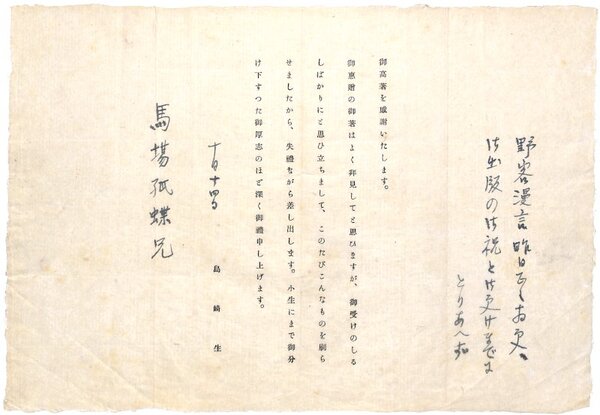 野客漫言 昨日
御出版の御祝と御受けまでに
とりあへず
御高著を感謝いたします。
御惠贈の御著はよく拜見してと思ひますが、御受けのしる
しばかりにと思ひ立ちまして、このたびこんなものを刷ら
せましたから、失禮ながら差し出します。小生にまで御分
け下すつた御厚志のほど深く御禮申し上げます。
十月十四日 島崎生
馬場孤蝶兄